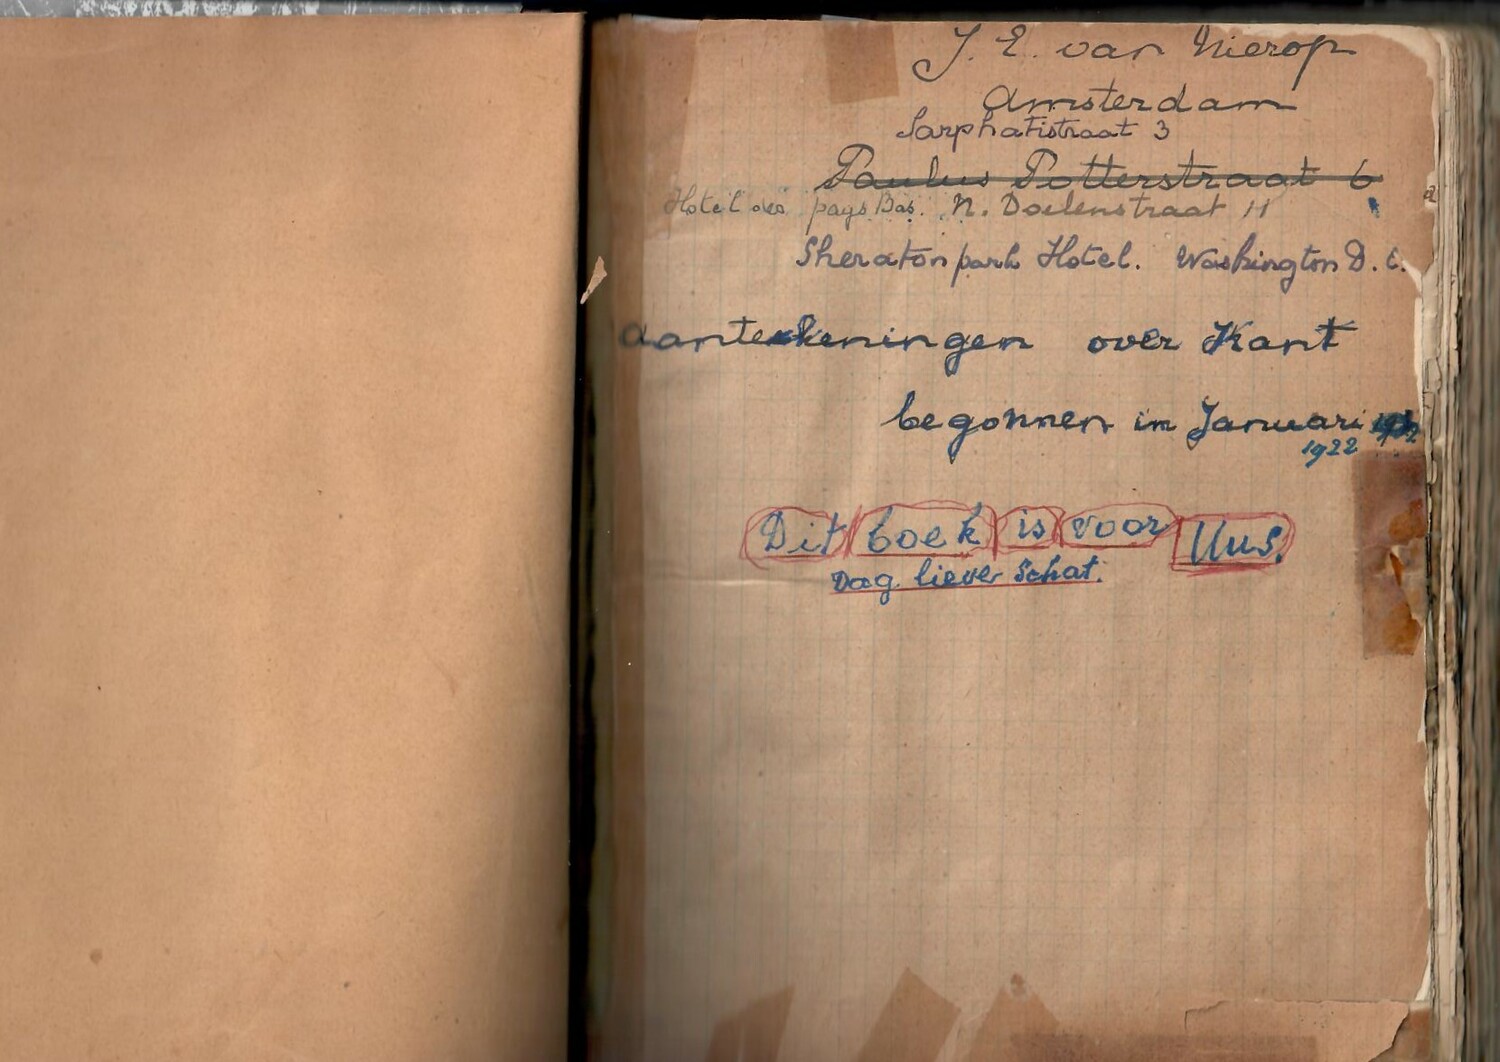 J. E. van Nierop
Amsterdam
Sarphatistraat 3
Paulus Potterstraat 6
Hotel des pays Bas. N. Doelenstraat 11
Sheraton park Hotel. Washington D.C.
Aantekeningen over Kant
begonnen in Januari
1922
Dit boek is voor Uus.
Dag liever Schat.